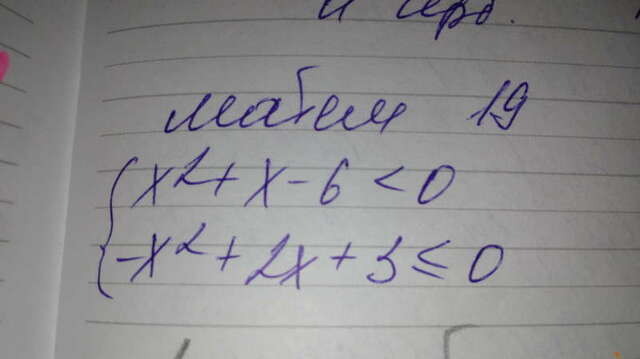 и
матем 19
x² + x - 6 < 0
-x² + 2x + 3 ≤ 0